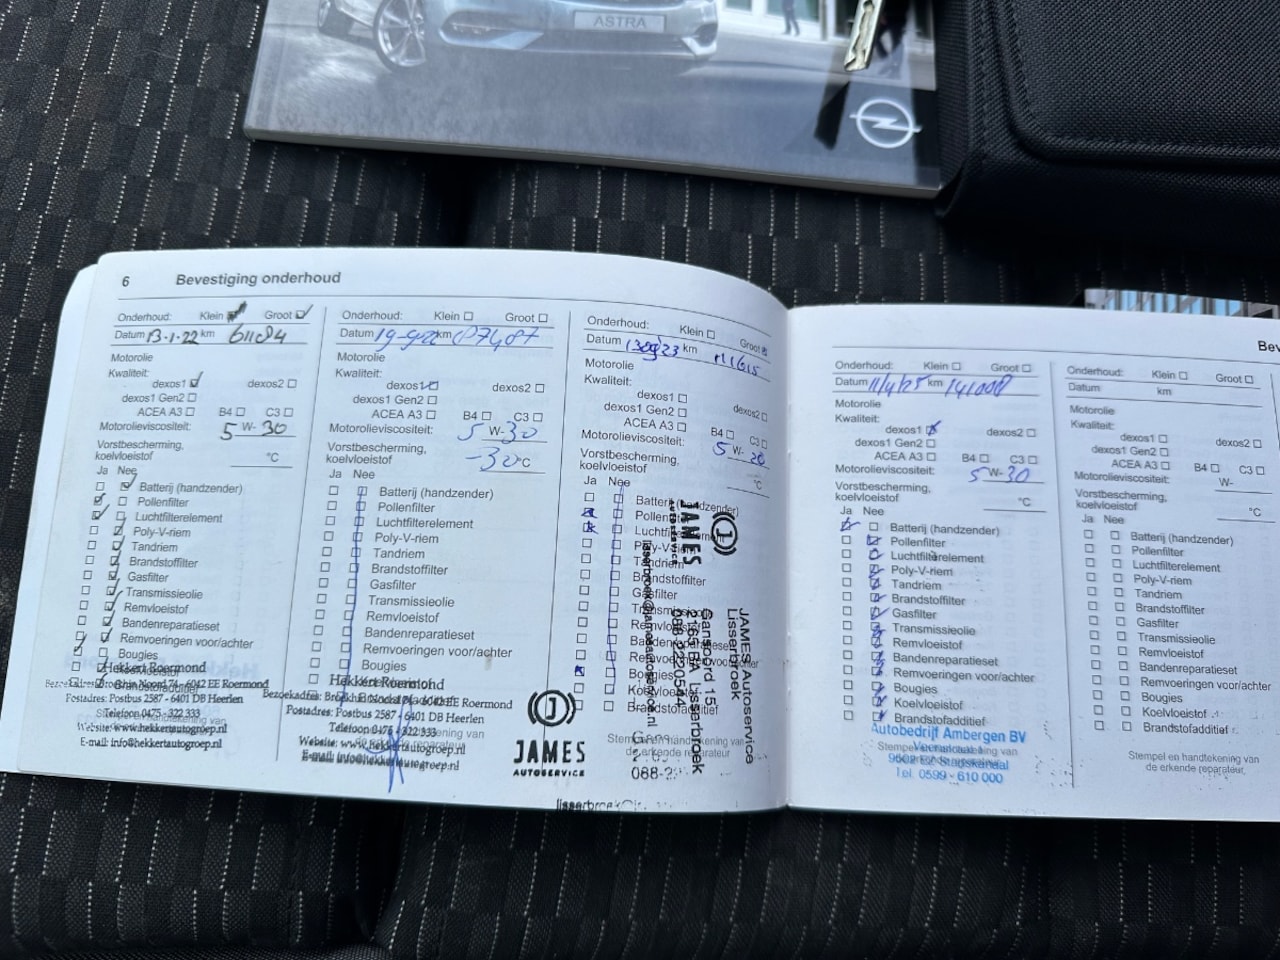 ASTRA
6 Bevestiging onderhoud
Onderhoud: Klein Groot
Datum 13-1-22 km 61184
Motorolie
Kwaliteit:
dexos1 dexos2
dexos1 Gen2
ACEA A3 B4 C3
Motorolieviscositeit: 5 W- 30
Vorstbescherming,
koelvloeistof °C
Ja Nee
Batterij (handzender)
Pollenfilter
Luchtfilterelement
Poly-V-riem
Tandriem
Brandstoffilter
Gasfilter
Transmissieolie
Remvloeistof
Bandenreparatieset
Remvoeringen voor/achter
Bougies
Hekkert Roermond
Bezoekadres: Broekhin Noord 74 - 6042 EE Roermond
Postadres: Postbus 2587 - 6401 DB Heerlen
Telefoon 0475 - 322 333
Website: www.hekkertautogroep.nl
E-mail: info@hekkertautogroep.nl
Onderhoud: Klein Groot
Datum km 87487
Motorolie
Kwaliteit:
dexos1 dexos2
dexos1 Gen2
ACEA A3 B4 C3
Motorolieviscositeit: 5 W- 30
Vorstbescherming,
koelvloeistof -30 °C
Ja Nee
Batterij (handzender)
Pollenfilter
Luchtfilterelement
Poly-V-riem
Tandriem
Brandstoffilter
Gasfilter
Transmissieolie
Remvloeistof
Bandenreparatieset
Remvoeringen voor/achter
Bougies
Hekkert Roermond
6042 EE Roermond
Postadres: Postbus 2587 - 6401 DB Heerlen
Telefoon 0475 - 322 333
Website: www.hekkertautogroep.nl
E-mail: info@hekkertautogroep.nl
Onderhoud: Klein Groot
Datum km
Motorolie
Kwaliteit:
dexos1 dexos2
dexos1 Gen2
ACEA A3 B4 C3
Motorolieviscositeit: 5 W- 30
Vorstbescherming,
koelvloeistof °C
Ja Nee
Batterij (handzender)
Brandstoffilter
Gasfilter
Brandstofadditief
JAMES
AUTOSERVICE
JAMES Autoservice
Lisserbroek
Gansoord 15
2165 BA Lisserbroek
lisserbroek@jamesautoservice.nl
JAMES
AUTOSERVICE
088-2
Stempel en handtekening van
de erkende reparateur
Onderhoud: Klein Groot
Datum 11/4/25 km 141008
Motorolie
Kwaliteit:
dexos1 dexos2
dexos1 Gen2
ACEA A3 B4 C3
Motorolieviscositeit: 5 W- 30
Vorstbescherming,
koelvloeistof °C
Ja Nee
Batterij (handzender)
Pollenfilter
Luchtfilterelement
Poly-V-riem
Tandriem
Brandstoffilter
Gasfilter
Transmissieolie
Remvloeistof
Bandenreparatieset
Remvoeringen voor/achter
Bougies
Koelvloeistof
Brandstofadditief
Autobedrijf Ambergen BV
Stadskanaal
Tel. 0599 - 610 000
Bev
Onderhoud: Klein Groot
Datum km
Motorolie
Kwaliteit:
dexos1 dexos2
dexos1 Gen2
ACEA A3 B4 C3
Motorolieviscositeit: W-
Vorstbescherming,
koelvloeistof °C
Ja Nee
Batterij (handzender)
Pollenfilter
Luchtfilterelement
Poly-V-riem
Tandriem
Brandstoffilter
Gasfilter
Transmissieolie
Remvloeistof
Bandenreparatieset
Remvoeringen voor/achter
Bougies
Koelvloeistof
Brandstofadditief
Stempel en handtekening van
de erkende reparateur